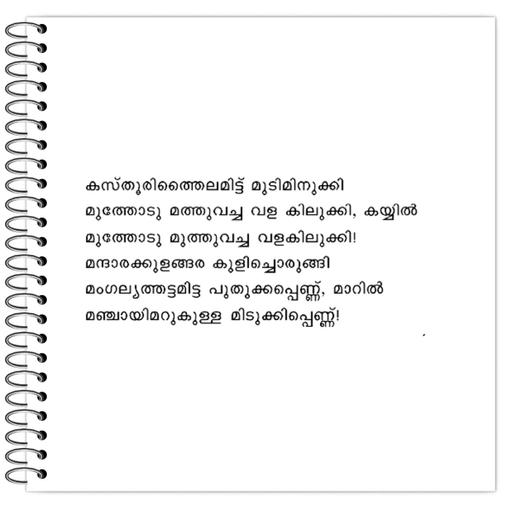 കസ്തൂരിത്തൈലമിട്ട് മുടിമിനുക്കി
മുത്തോടു മത്തുവച്ച വള കിലുക്കി, കയ്യിൽ
മുത്തോടു മുത്തുവച്ച വളകിലുക്കി!
മന്ദാരക്കുളങ്ങര കുളിച്ചൊരുങ്ങി
മംഗല്യത്തട്ടമിട്ട പുതുക്കപ്പെണ്ണ്, മാറിൽ
മഞ്ചായിമറുകുള്ള മിടുക്കിപ്പെണ്ണ്!